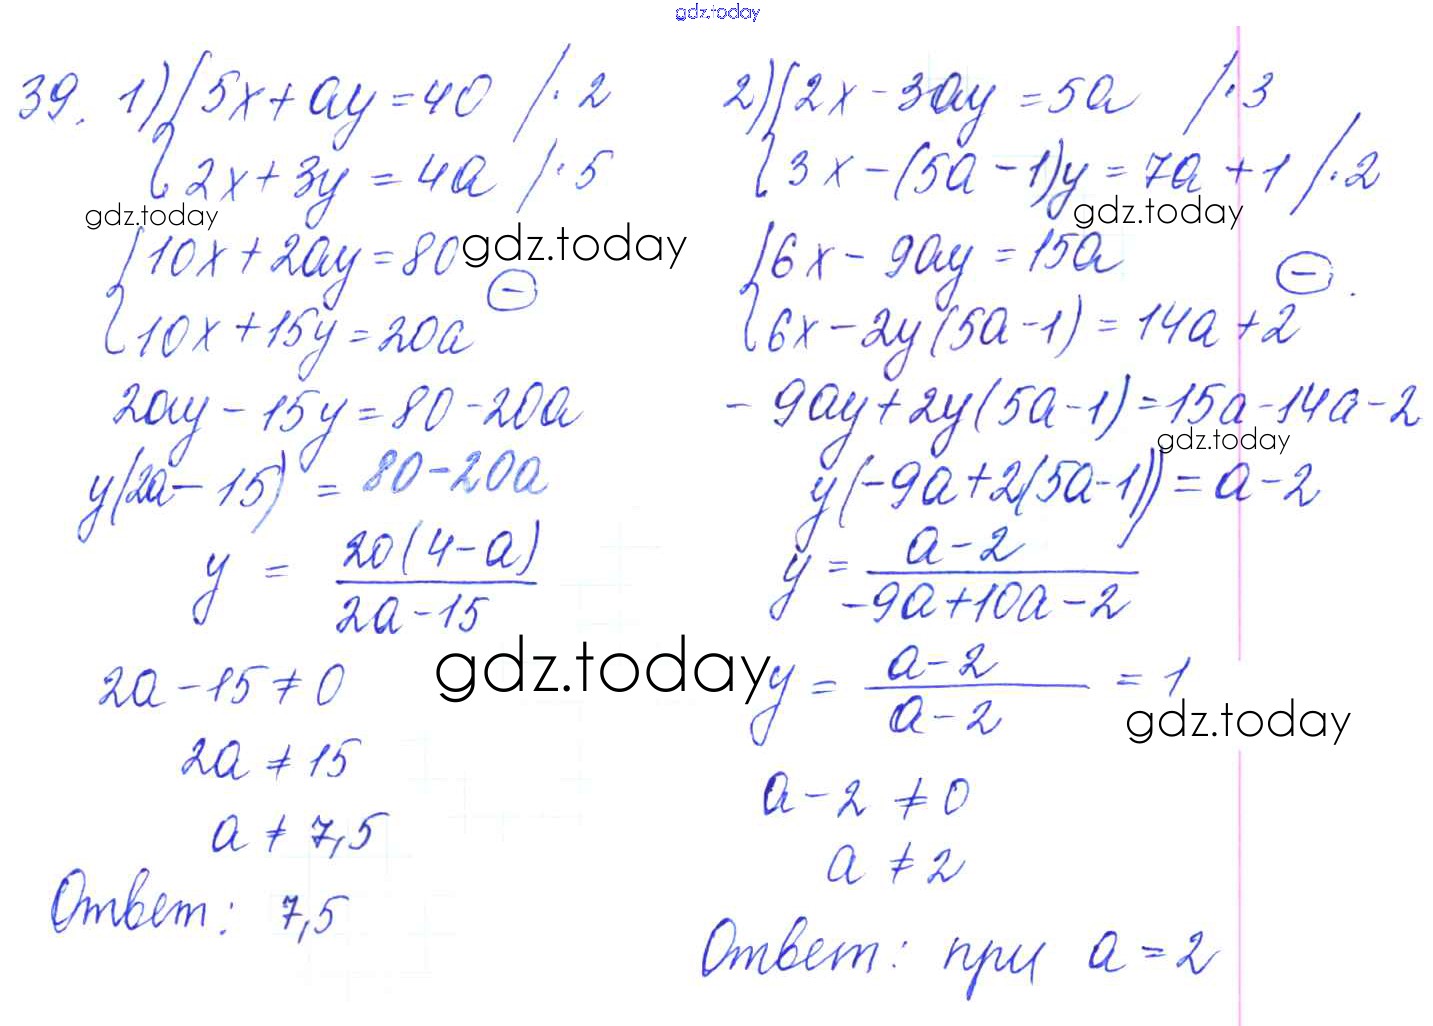 gdz.today
39. 1) { 5x + ay = 40 / · 2
2x + 3y = 4a / · 5
gdz.today
{ 10x + 2ay = 80
gdz.today
10x + 15y = 20a
−
2ay − 15y = 80 − 20a
y(2a − 15) = 80 − 20a
y = 20(4 − a) / 2a − 15
gdz.today
2a − 15 ≠ 0
2a ≠ 15
a ≠ 7,5
Ответ: 7,5
2) { 2x − 3ay = 5a / · 3
3x − (5a − 1)y = 7a + 1 / · 2
gdz.today
{ 6x − 9ay = 15a
−
6x − 2y(5a − 1) = 14a + 2
− 9ay + 2y(5a − 1) = 15a − 14a − 2
gdz.today
y(−9a + 2(5a − 1)) = a − 2
y = a − 2 / −9a + 10a − 2
y = a − 2 / a − 2 = 1
gdz.today
a − 2 ≠ 0
a ≠ 2
Ответ: при a = 2